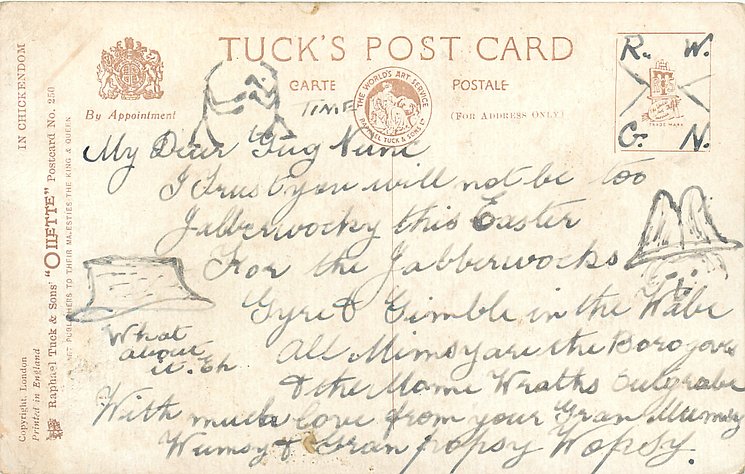 TUCK'S POST CARD
CARTE POSTALE
(FOR ADDRESS ONLY)
THE WORLD'S ART SERVICE
RAPHAEL TUCK & SONS LD
By Appointment
TIME
R. W.
G. N.
TRADE MARK
My Dear Gug Nunc
I trust you will not be too
Jabberwocky this Easter
For the Jabberwocks
Gyre & Gimble in the Wabe
All Mimsy are the Borogove
& the Mome Wraths outgrabe
With much love from your Gran Mumsy
Wumsy & Gran popsy Wopsy.
What
about
it. Eh
IN CHICKENDOM
Raphael Tuck & Sons' "OILETTE" Postcard No. 250
ART PUBLISHERS TO THEIR MAJESTIES THE KING & QUEEN
Copyright. London
Printed in England